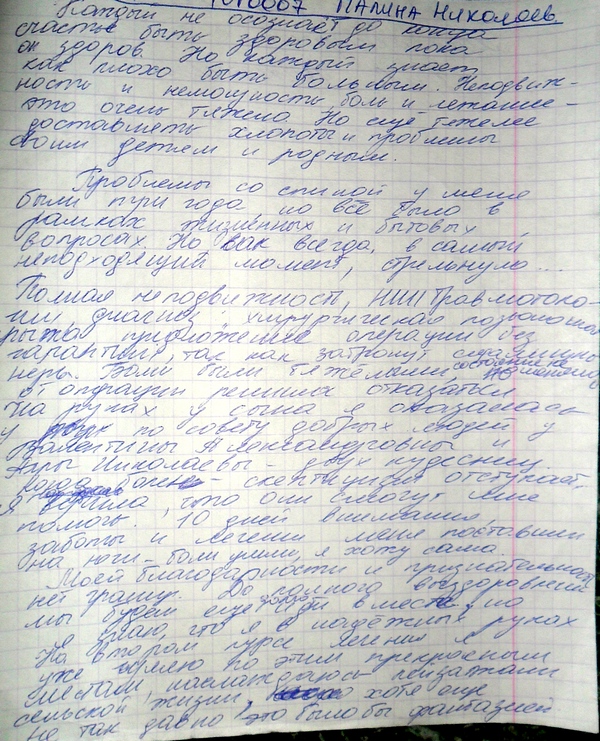 Галина Николаев
Каждый не осознаёт до конца
счастье быть здоровым пока
он здоров. Но каждый знает,
как плохо быть больным. Неподвиж-
ность и немощность, боль и лежание –
это очень тяжело. Но ещё тяжелее
доставлять хлопоты и проблемы
своим детям и родным.
Проблемы со спиной у меня
были три года, но всё было в
рамках жизненных и бытовых
вопросах. Но как всегда, в самый
неподходящий момент, стрельнуло...
Полная неподвижность, НИИ Травматоло-
гии, диагноз: хирургическая
предложение операции без
гарантии, так как затронут
нерв. Боли были тяжелыми,
от операции решила отказаться
На руках у сына я оказалась
у по совету добрых людей у
Валентины Александровны и
Аллы Николаевы – двух кудесниц.
Когда – скептицизм отступает,
Я верила, что они смогут мне
помочь. 10 дней внимания,
заботы и лечения меня поставили
на ноги – боли ушли, я хожу сама
Моей благодарности и признательности
нет границ. До полного выздоровления
мы будем еще вместе, но
я знаю, что я в надёжных руках
На втором курсе лечения я
уже гуляю по этим прекрасным
местам, наслаждаюсь пейзажами
сельской жизни, хотя еще
не так давно это было бы фантазией